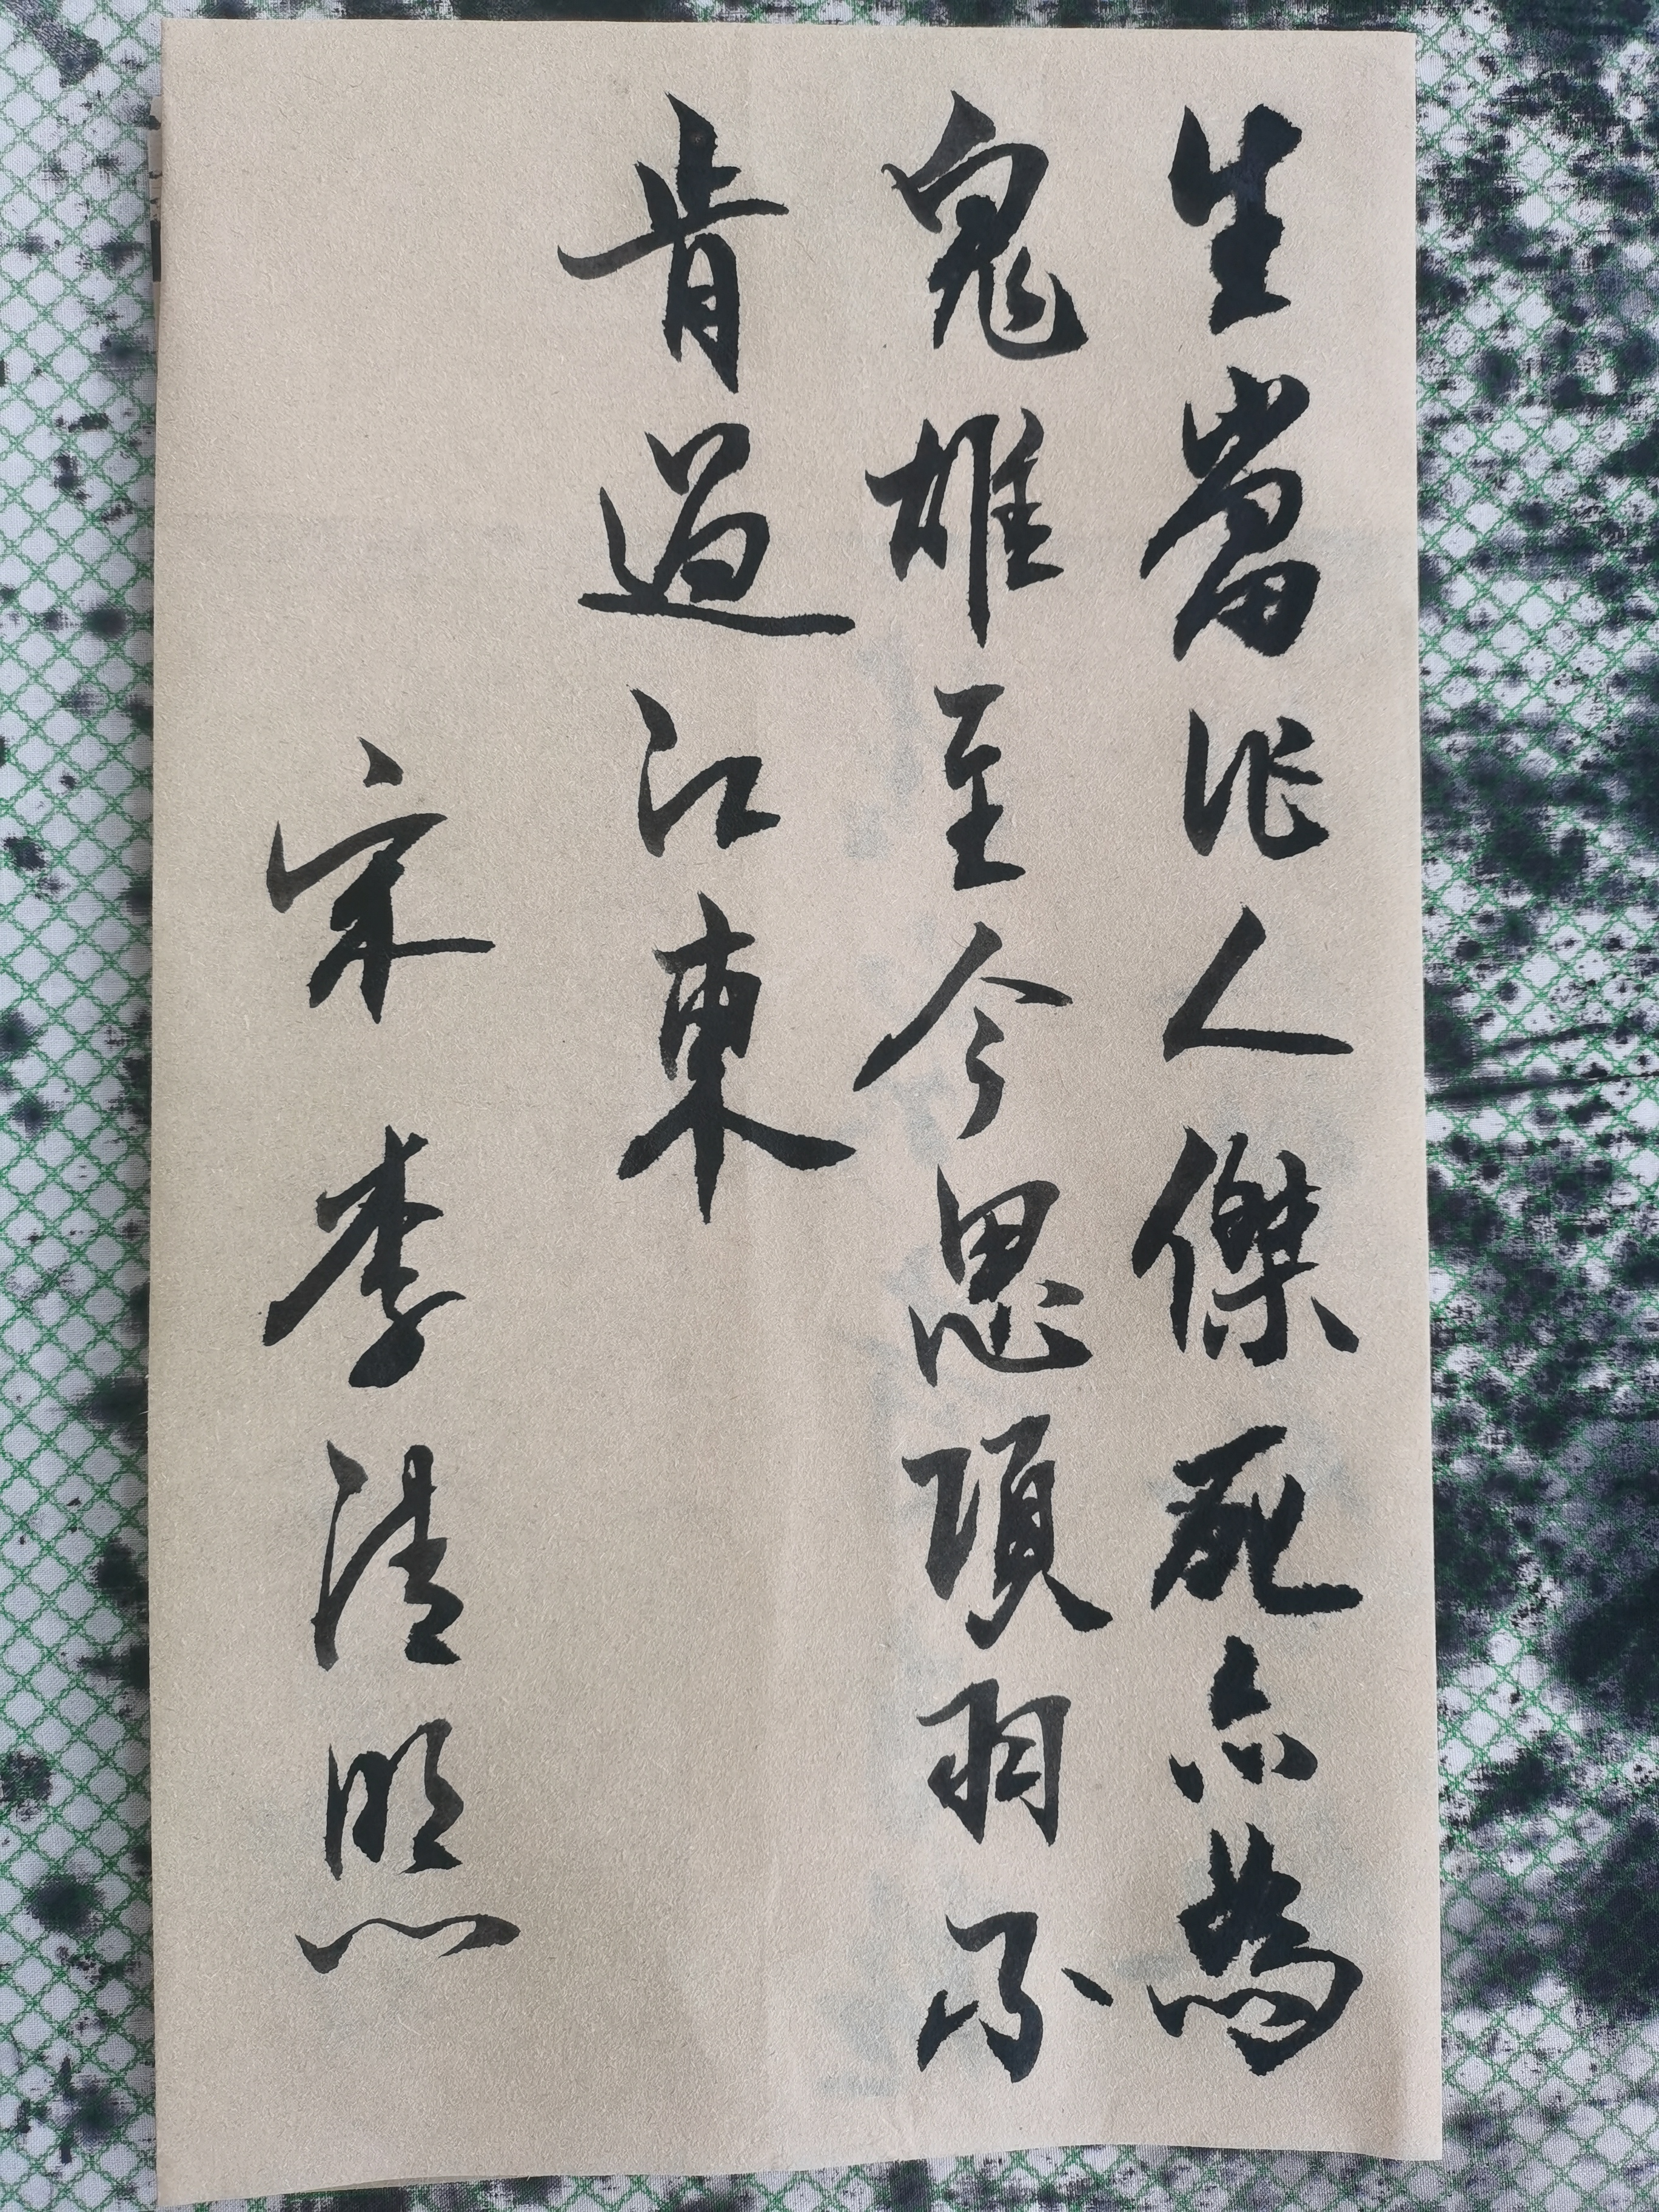 生當作人傑死亦為
鬼雄至今思項羽不
肯過江東
宋李清照